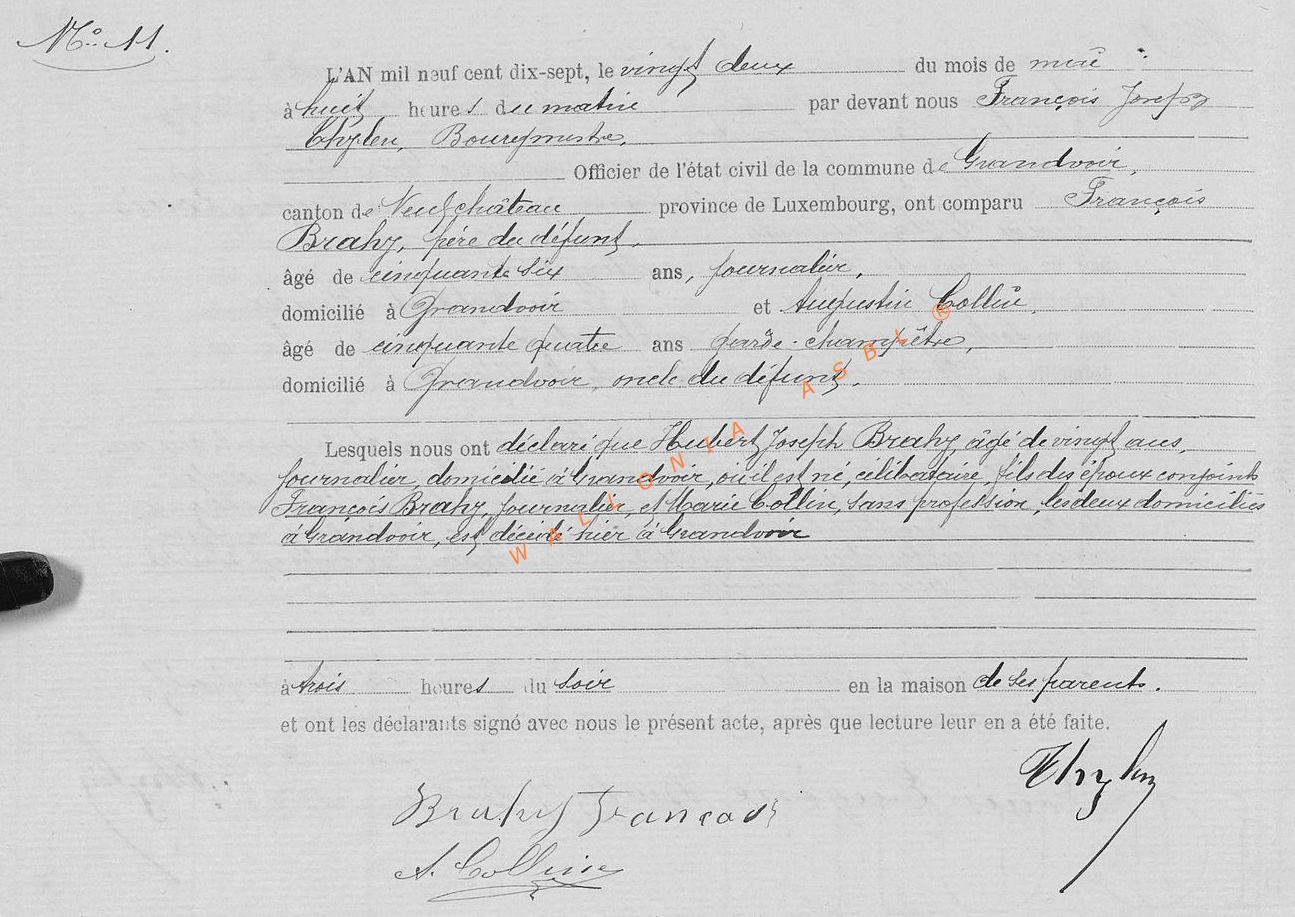 N° 11.
L'AN mil neuf cent dix-sept, le vingt deux du mois de mai
à huit heures du matin par devant nous François Joseph
Thylen, Bourgmestre,
Officier de l'état civil de la commune de Grandvoir,
canton de Neufchâteau province de Luxembourg, ont comparu François
Brahy, père du défunt,
âgé de cinquante six ans, journalier,
domicilié à Grandvoir et Augustin Collin,
âgé de cinquante quatre ans garde-champêtre,
domicilié à Grandvoir, oncle du défunt.
Lesquels nous ont déclaré que Hubert Joseph Brahy, âgé de vingt ans,
journalier, domicilié à Grandvoir, où il est né, célibataire, fils des époux conjoints
François Brahy, journalier, et Marie Collin, sans profession, les deux domiciliés
à Grandvoir, est décédé hier à Grandvoir
à trois heures du soir en la maison de ses parents.
et ont les déclarants signé avec nous le présent acte, après que lecture leur en a été faite.
Brahy Francois
A. Collin
WALLONIA ASBL ®